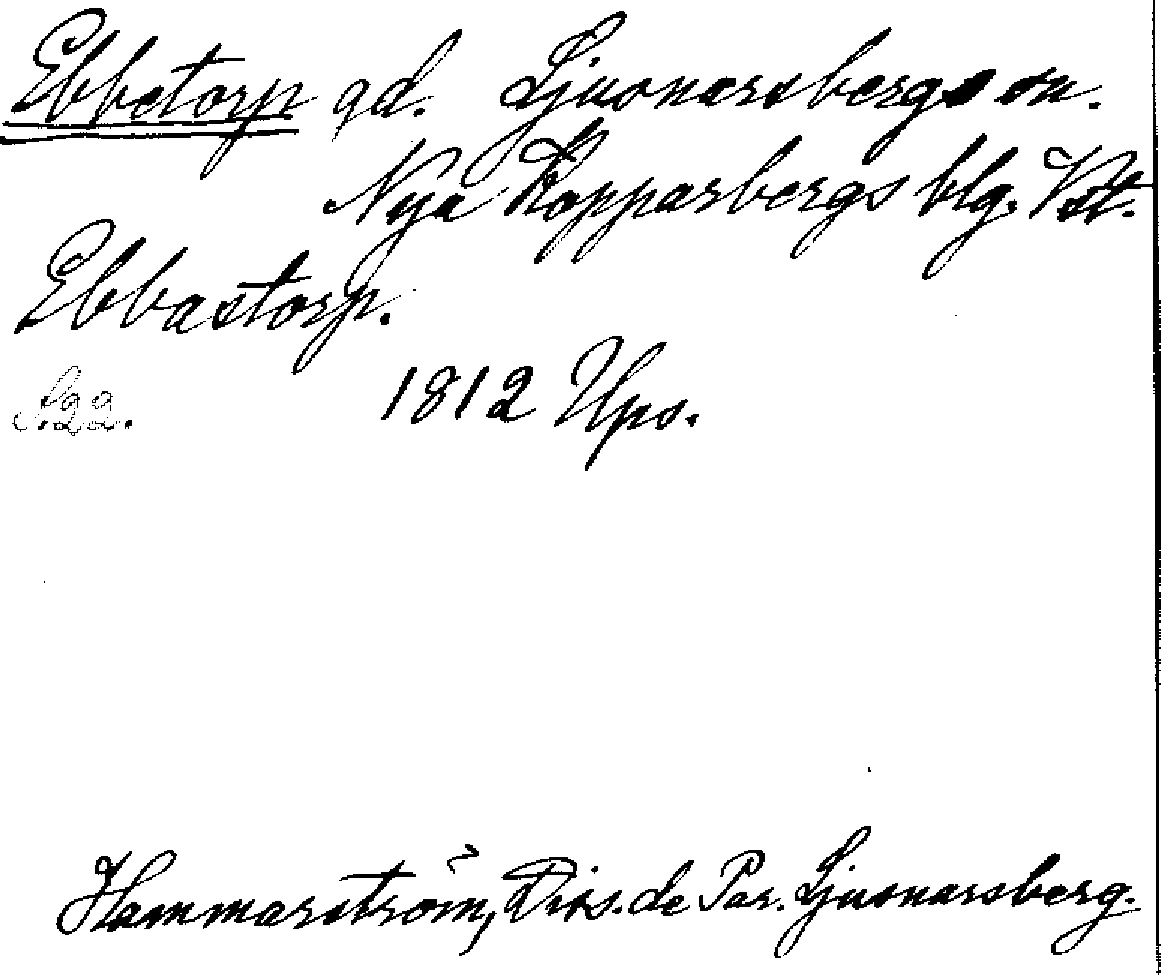 Ebbetorp gd. Ljusnarsbergs sn.
Nya Kopparbergs blg. Vstm.
Ebbastorp.
s.22. 1812 Ups.
Hammarström, Diss. de Par. Ljusnarsberg.